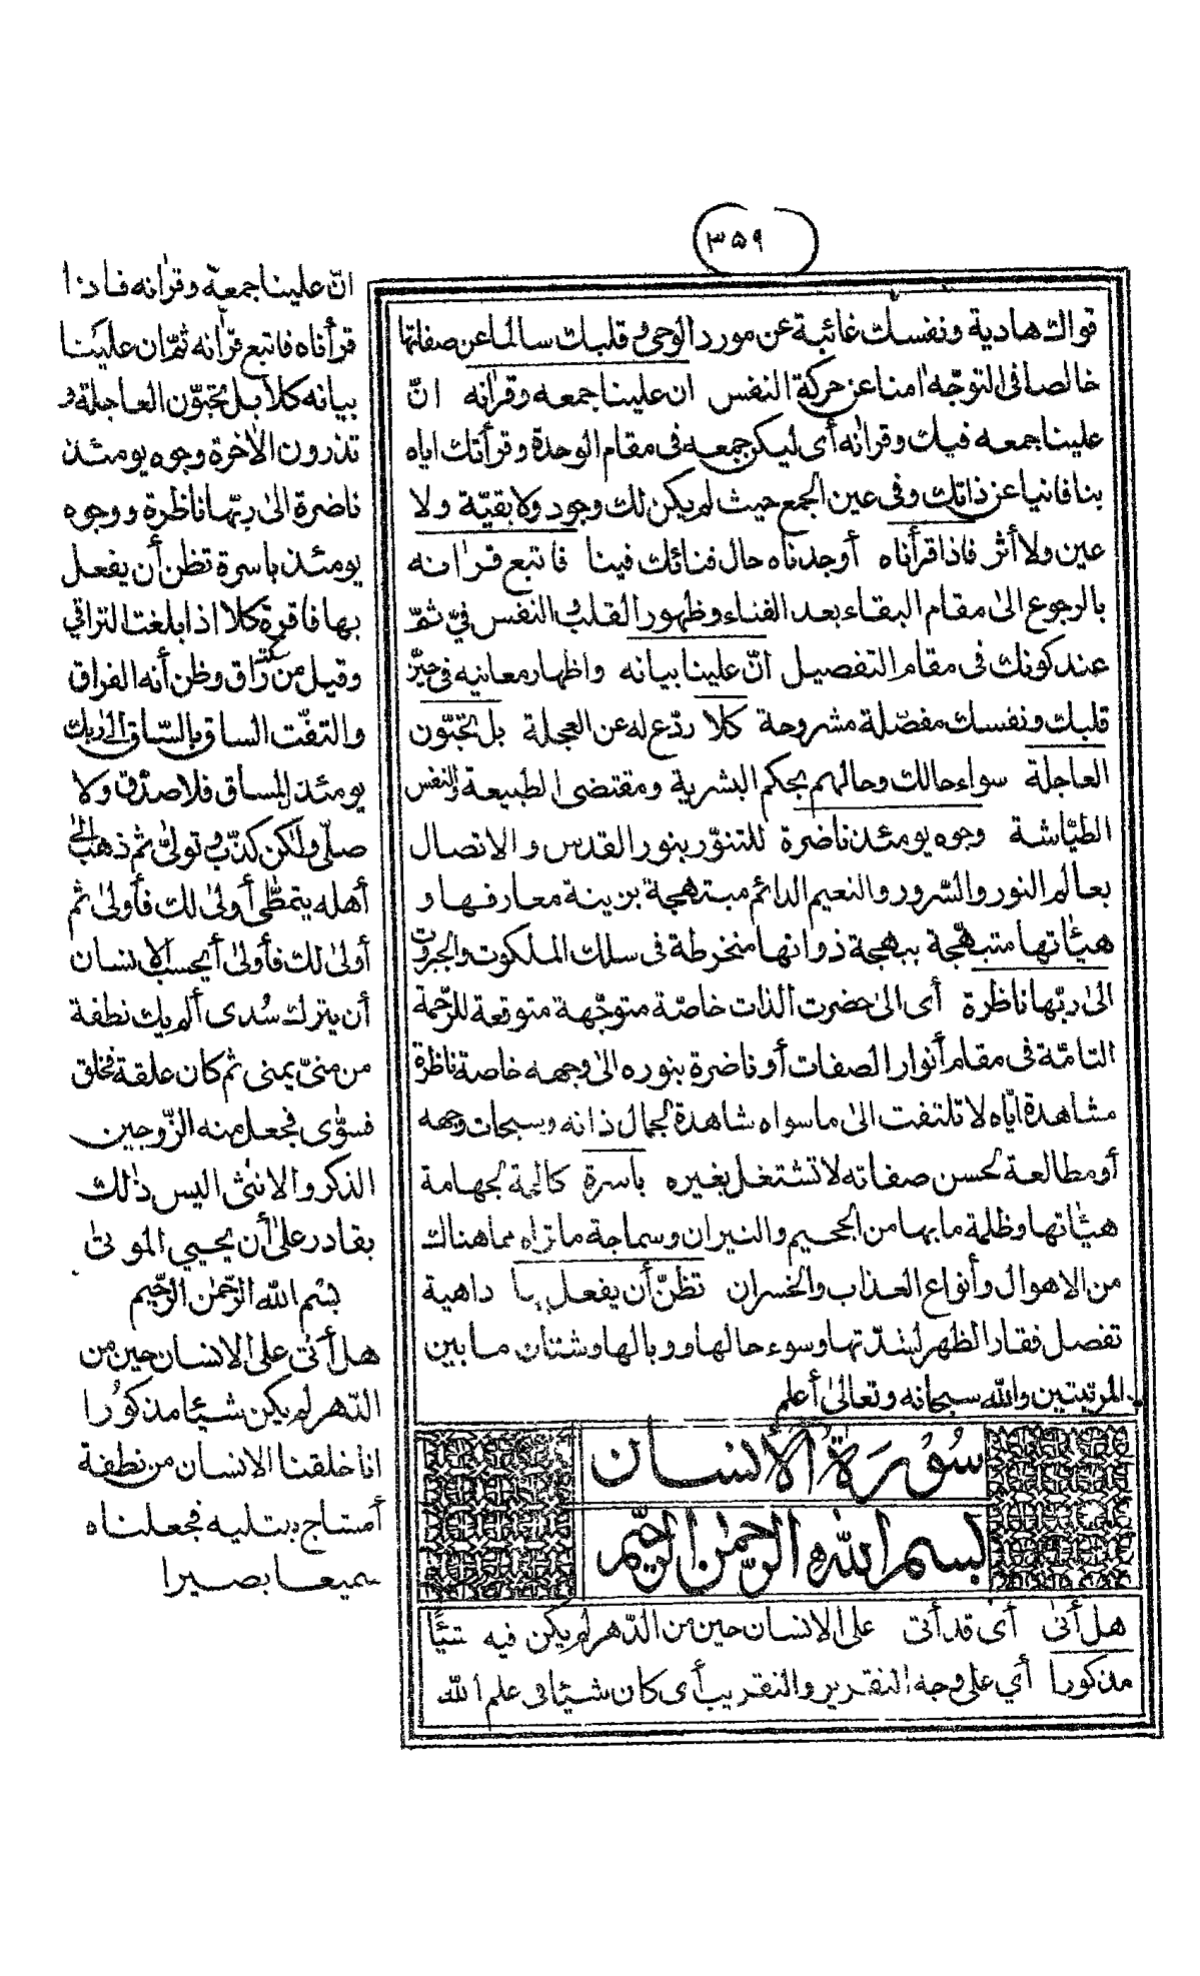 ٣٥٩
قواك هادية ونفسك غائبة عن مورد الوحى وقلبك سالما عن صفاتها
خالصا فى التوجّه امنا عن حركة النفس ان علينا جمعه وقرانه انّ
علينا جمعه فيك وقرانه أى ليكن جمعه فى مقام الوحدة وقرأتك اياه
بنا فانيا عن ذاتك وفى عين الجمع حيث لم يكن لك وجود ولا بقيّة ولا
عين ولا أثر فاذا قرأناه أوجدناه حال فنائك فينا فاتبع قرانه
بالرجوع الى مقام البقاء بعد الفناء وظهور القلب والنفس فىّ ثمّ
عند كونك فى مقام التفصيل انّ علينا بيانه واظهار معانيه فى حيّز
قلبك ونفسك مفصّلة مشروحة كلا ردع له عن العجلة بل تحبّون
العاجلة سواء حالك وحالهم بحكم البشرية ومقتضى الطبيعة والنفس
الطيّاشة وجوه يومئذ ناضرة للتنوّر بنور القدس والاتصال
بعالم النور والسّرور والنعيم الدائم مبتهجة بزينة معارفها و
هيئاتها متبهّجة ببهجة ذواتها منخرطة فى سلك الملكوت والجبروت
الى ربّها ناظرة أى الى حضرت الذات خاصّة متوجّهة متوقعة للرّحمة
التامّة فى مقام أنوار الصفات أو ناضرة بنوره الى وجهه خاصة ناظرة
مشاهدة ايّاه لا تلتفت الى ما سواه شاهدة لجمال ذاته وسبحات وجهه
أو مطالعة لحسن صفاته لا تشتغل بغيره باسرة كالحة لجهامة
هيئاتها وظلمة ما بها من الجحيم والنيران وسماجة ما تراه مما هناك
من الاهوال وأنواع العذاب والخسران تظنّ أن يفعل بها داهية
تفصل فقار الظهر لشدّتها وسوء حالها ووبالها وشتان ما بين
المرتبتين والله سبحانه وتعالى أعلم
سُورَة الأنسان
بسم الله الرحمن الرحيم
هل أتى أى قد أتى على الانسان حين من الدّهر لم يكن فيه شيئا
مذكورا أي على وجه التقرير والتقريب أى كان شيئا فى علم الله
انّ علينا جمعه وقرانه فاذا
قرأناه فاتبع قرانه ثمّ ان علينا
بيانه كلا بل تحبّون العاجلة و
تذرون الاخرة وجوه يومئذ
ناضرة الى ربّها ناظرة ووجوه
يومئذ باسرة تظن أن يفعل
بها فاقرة كلا اذا بلغت التراقي
وقيل من سكتة راق وظن أنه الفراق
والتفّت الساق بالسّاق الى ربك
يومئذ المساق فلا صدّق ولا
صلّى ولكن كذّب وتولّى ثم ذهب الى
أهله يتمطّى أولى لك فأولى ثم
أولى لك فأولى أيحسب الانسان
أن يترك سُدى ألم يك نطفة
من منىّ يمنى ثم كان علقة فخلق
فسوّى فجعل منه الزّوجين
الذكر والانثى اليس ذلك
بقادر على أن يحيي الموتى
بسْم الله الرّحمن الرّحيم
هل أتى على الانسان حين من
الدّهر لم يكن شيئا مذكورا
انا خلقنا الانسان من نطفة
أمشاج نبتليه فجعلناه
سميعا بصيرا